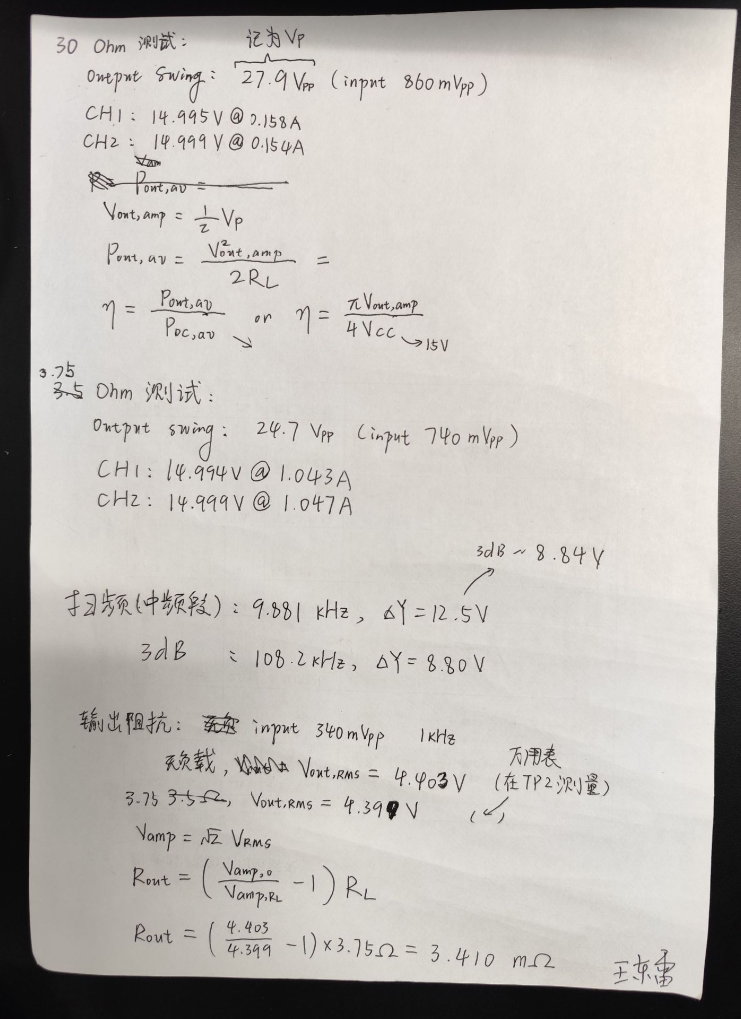 30 Ohm 测试: 记为 Vp
Output Swing: 27.9 Vpp (input 860 mVpp)
CH1: 14.995 V @ 0.158A
CH2: 14.999 V @ 0.154A
Pout,av =
Vout,amp = 1/2 Vp
Pout,av = V²out,amp / 2RL =
η = Pout,av / PDC,av or η = πVout,amp / 4Vcc → 15V
3.75
3.5 Ohm 测试:
Output swing: 24.7 Vpp (input 740 mVpp)
CH1: 14.994V @ 1.043A
CH2: 14.999V @ 1.047A
3dB ~ 8.84 V
扫频(中频段): 9.881 kHz, ΔY = 12.5V
3dB : 108.2 kHz, ΔY = 8.80 V
输出阻抗: input 340 mVpp 1 kHz
无负载, Vout,RMS = 4.403 V
万用表
(在TP2测量)
3.75 3.5Ω, Vout,RMS = 4.399 V
Vamp = √2 VRMS
Rout = (Vamp,o / Vamp,RL - 1) RL
Rout = (4.403 / 4.399 - 1) × 3.75Ω = 3.410 mΩ